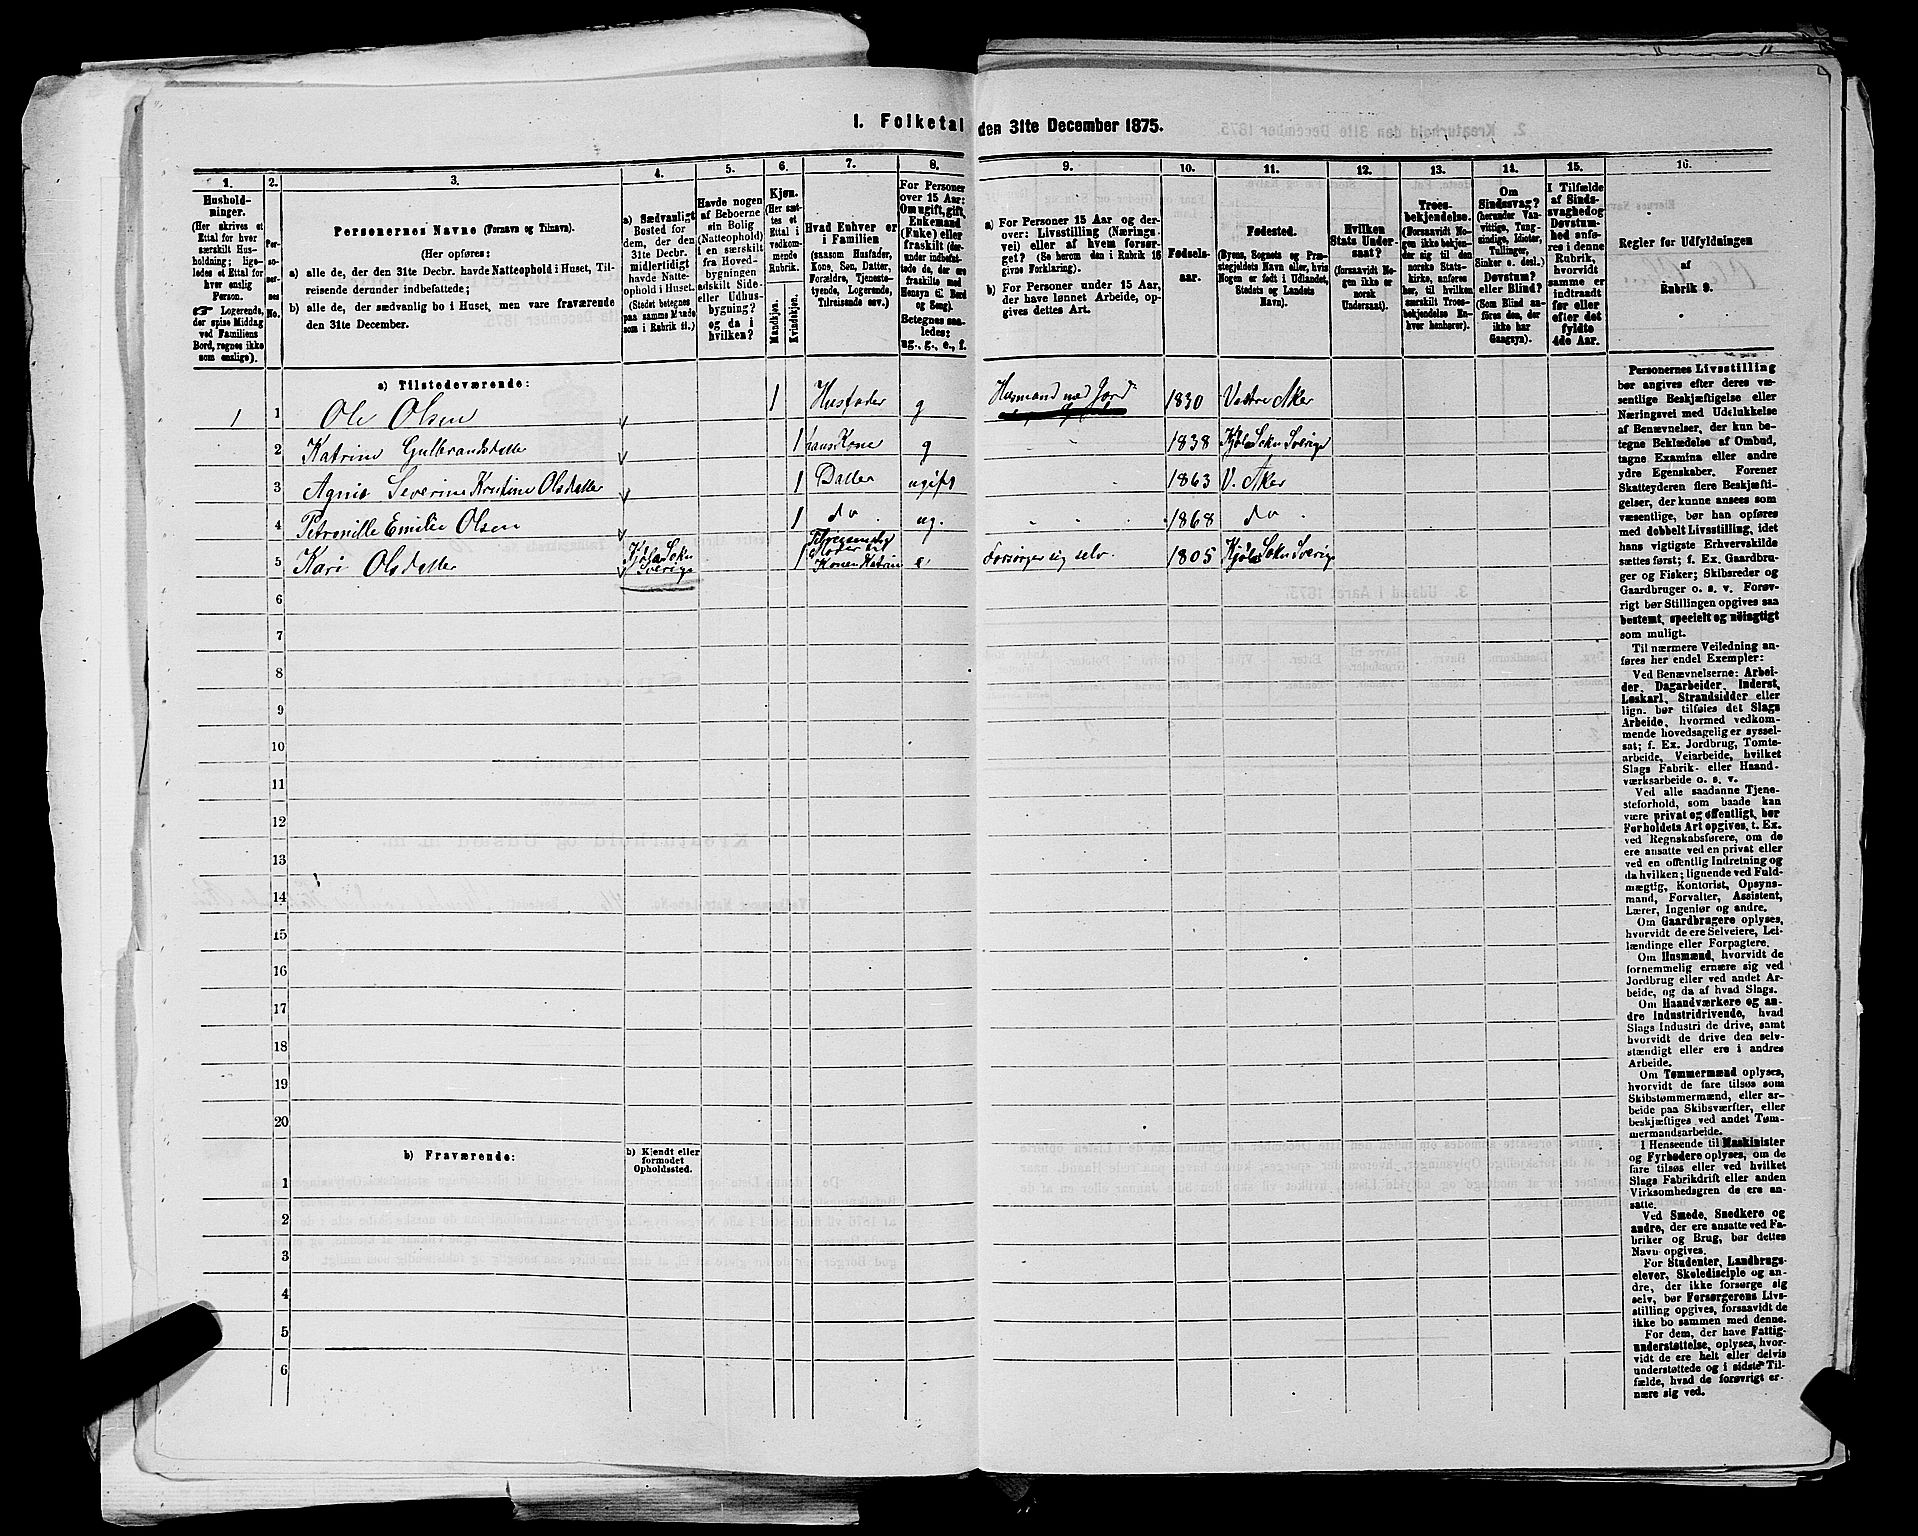 I. Folketal den 31te December 1875.
1.
2.
3.
4.
5.
6.
7.
8.
9.
10.
11.
12.
13.
14.
15.
16.
Hushold-
ninger.
(Her skrives et
Ettal for hver
særskilt Hus-
holdning; lige-
ledes et Ettal for
hver enslig
Person.
☞ Logerende,
der spise Middag
ved Familiens
Bord, regnes ikke
som enslige).
Per-
so-
ner-
nes
No.
Personernes Navne (Fornavn og Tilnavn).
(Her opføres:
a) alle de, der den 31te Decbr. havde Natteophold i Huset, Til-
reisende derunder indbefattede;
b) alle de, der sædvanlig bo i Huset, men vare fraværende
den 31te December.
a) Sædvanligt
Bosted for
dem, der den
31te Decbr.
midlertidigt
havde Natte-
ophold i Huset.
(Stedet betegnes
paa samme Maade
som i Rubrik 11.)
Havde nogen
af Beboerne
sin Bolig
(Natteophold)
i en særskilt
fra Hoved-
bygningen
adskilt Side-
eller Udhus-
bygning?
og da i
hvilken?
Kjøn.
(Her sæt-
tes et
Ettal i
vedkom-
mende
Rubrik.
Mandkjøn.
Kvindekjøn.
Hvad Enhver er
i Familien
(saasom Husfader,
Kone, Søn, Datter,
Forældre, Tjeneste-
tyende, Logerende,
Tilreisende osv.)
For Personer
over 15 Aar:
Om ugift, gift,
Enkemand
(Enke) eller
fraskilt (der-
under indbefat-
tede de, der ere
fraskilte med
Hensyn til Bord
og Seng).
Betegnes saa-
ledes:
ug., g., e., f.
a) For Personer 15 Aar og der-
over: Livsstilling (Nærings-
vei) eller af hvem forsør-
get? (Se herom den i Rubrik 16
givne Forklaring).
b) For Personer under 15 Aar,
der have lønnet Arbeide, op-
gives dettes Art.
Fødsels-
aar.
Fødested.
(Byens, Sognets og Præ-
stegjeldets Navn eller, hvis
Nogen er født i Udlandet,
Stedets og Landets
Navn).
Hvilken
Stats Under-
saat?
(forsaavidt No-
gen ikke er
norsk
Undersaat).
Troes-
bekjendelse.
(Forsaavidt No-
gen ikke bekjen-
der sig til den
norske Stats-
kirke, anføres
særskilt Troes-
bekjendelse En-
hver henhører).
Om
Sindssvag?
(herunder Van-
vittige, Tung-
sindige, Idioter,
Tullinger,
Sinker o. desl.)
Døvstum?
eller Blind?
(Som Blind an-
føres den, der
ikke har
Gangsyn).
I Tilfælde
af Sinds-
svaghed og
Døvstum-
hed anføres
i denne
Rubrik,
hvorvidt
samme er
indtraadt
før eller
efter det
fyldte
4de Aar.
Regler for Udfyldningen
af
Rubrik 9.
a) Tilstedeværende:
1 1 Ole Olsen 1 Husfader g Husmand med Jord 1830 Vestre Aker
2 Katrine Gulbrandsdatter 1 hans Kone g 1838 Sverige
3 Agnis Severine Olsdatter 1 Datter ugift 1863 V. Aker
4 Petronille Emilie Olsen 1 do. ug. 1868 do
5 Kari Olsdatter Sverige 1 Moder til Konen Katrine e Forsørger sig selv. 1805 Sverige
6
7
8
9
10
11
12
13
14
15
16
17
18
19
20
b) Fraværende:
b) Kjendt eller
formodet
Opholdssted.
1
2
3
4
5
6
Personernes Livsstilling
bør angives efter deres væ-
sentlige Beskjæftigelse eller
Næringsvei med Udelukkelse
af Benævnelser, der kun be-
tegne Beklædelse af Ombud,
tagne Examina eller andre
ydre Egenskaber. Forener
Skatteyderen flere Beskjæfti-
gelser, der kunne ansees som
væsentlige, bør han opføres
med dobbelt Livsstilling, idet
hans vigtigste Erhvervskilde
sættes først; f. Ex. Gaardbru-
ger og Fisker; Skibsreder og
Gaardbruger o. s. v. Forøv-
rigt bør Stillingen opgives saa
bestemt, specielt og nöiagtigt
som muligt.
Til nærmere Veiledning an-
føres her endel Exempler:
Ved Benævnelserne: Arbei-
der, Dagarbeider, Inderst,
Løskarl, Strandsidder eller
lign. bør tilføies det Slags
Arbeide, hvormed vedkom-
mende hovedsagelig er syssel-
sat; f. Ex. Jordbrug, Tomte-
arbeide, Veiarbeide, hvilket
Slags Fabrik- eller Haand-
værksarbeide o. s. v.
Ved alle saadanne Tjene-
steforhold, som baade kan
være privat og offentligt, bør
Forholdets Art opgives, t. Ex.
ved Regnskabsførere, om de
ere ansatte ved en privat eller
ved en offentlig Indretning og
da hvilken; lignende ved Fuld-
mægtig, Kontorist, Opsyns-
mand, Forvalter, Assistent,
Lærer, Ingeniør og andre.
Om Gaardbrugere oplyses,
hvorvidt de ere Selveiere, Lei-
lændinge eller Forpagtere.
Om Husmænd, hvorvidt de
fornemmelig ernære sig ved
Jordbrug eller ved andet Ar-
beide, og da af hvad Slags.
Om Haandværkere og an-
dre Industridrivende, hvad
Slags Industri de drive, samt
hvorvidt de drive den selv-
stændigt eller ere i andres
Arbeide.
Om Tømmermænd oplyses,
hvorvidt de fare tilsøs som
Skibstømmermænd, eller ar-
beide paa Skibsværfter, eller
beskjæftiges ved andet Tøm-
mermandsarbeide.
I Henseende til Maskinister
og Fyrbødere oplyses, om de
fare tilsøs eller ved hvilket
Slags Fabrikdrift eller anden
Virksomhed de ere an-
satte.
Ved Smede, Snedkere og
andre, der ere ansatte ved Fa-
briker og Brug, bør dettes
Navn opgives.
For Studenter, Landbrugs-
elever, Skoledisciple og an-
dre, der ikke forsørge sig
selv, bør Forsørgerens Livs-
stilling opgives, forsaavidt de
ikke bo sammen med denne.
For dem, der have Fattig-
understøttelse, oplyses, hvor-
vidt de ere helt eller delvis
understøttede og i sidste Til-
fælde, hvad de forøvrigt er-
nære sig ved.